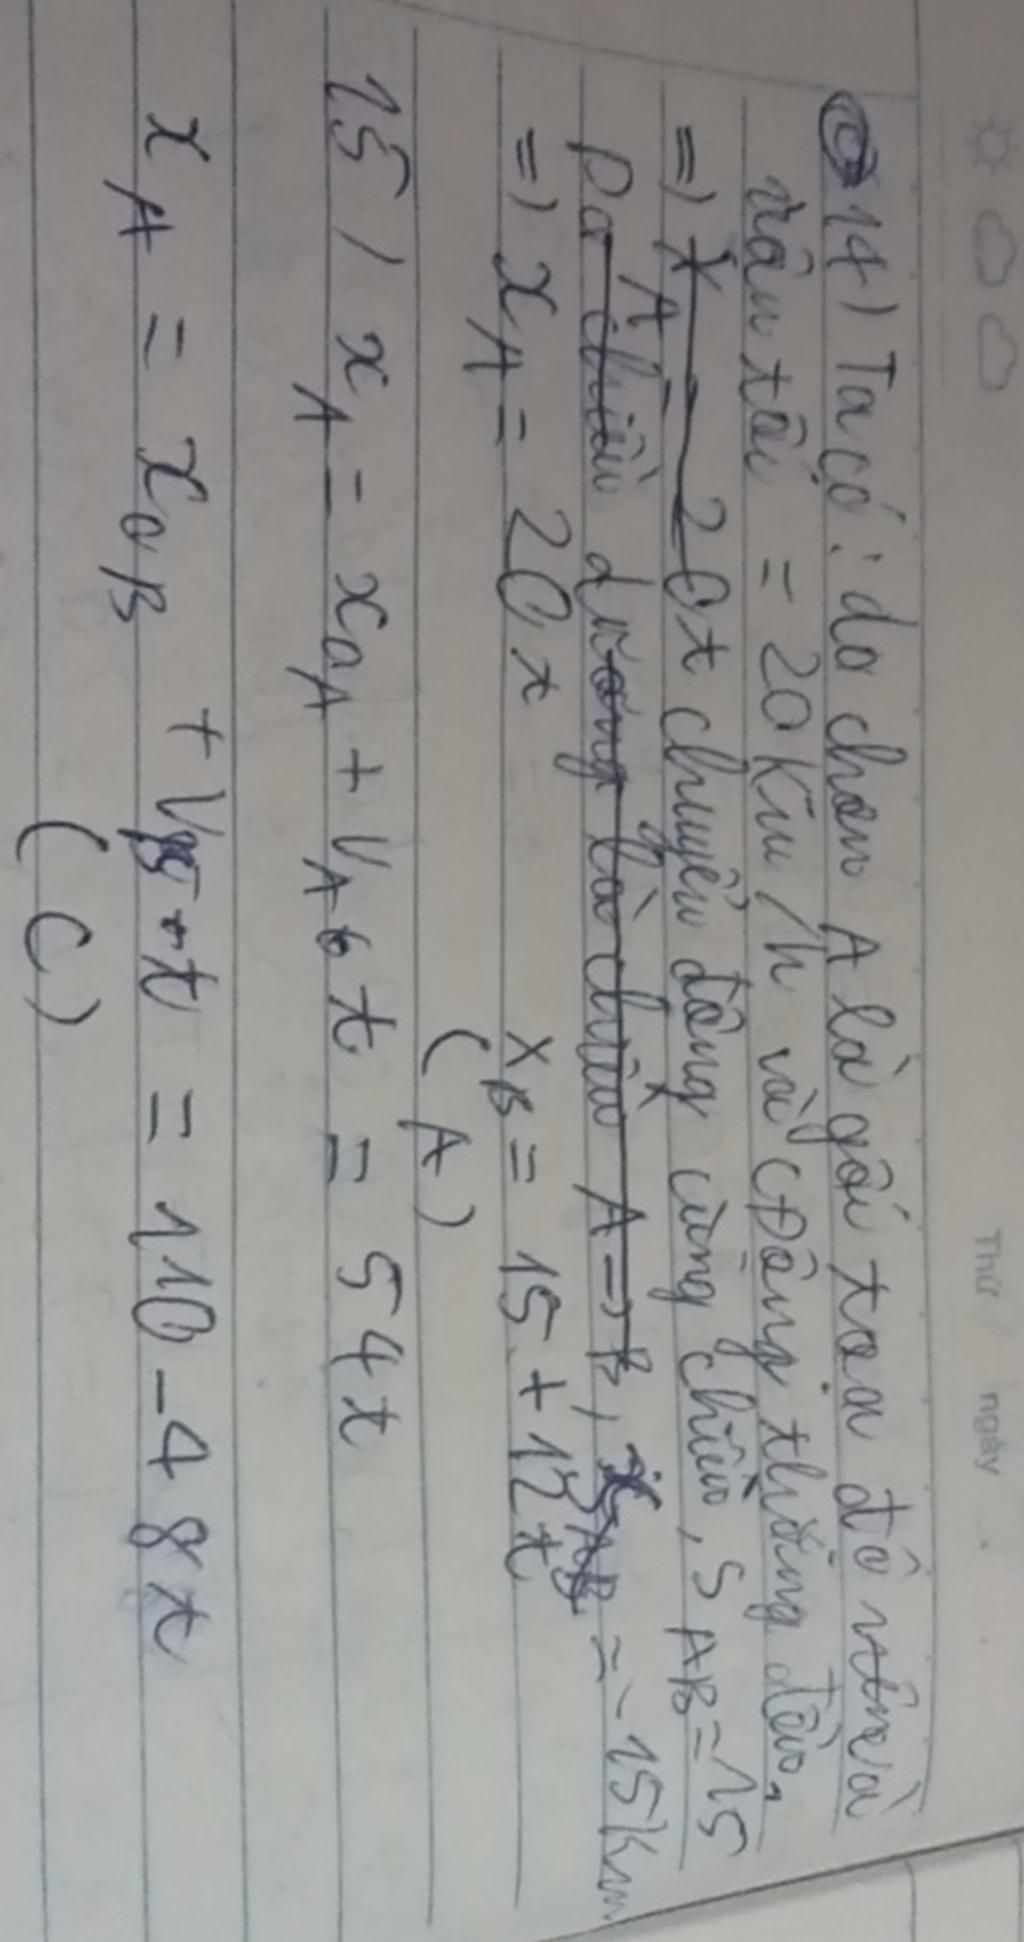 Thứ ngày
14) Ta có: do chọn A là gốc toạ độ và
vận tốc = 20 Km/h và cĐộng thẳng đều,
=) X A = 20t chuyển động cùng chiều, S AB = 15
Do chiều dương là chiều A -> B, = - 15 km
=) x A = 20t x B = 15 + 12t
(A)
15) x A = x 0A + V A . t = 54t
x A = x 0B + V B . t = 110 - 48t
(C)